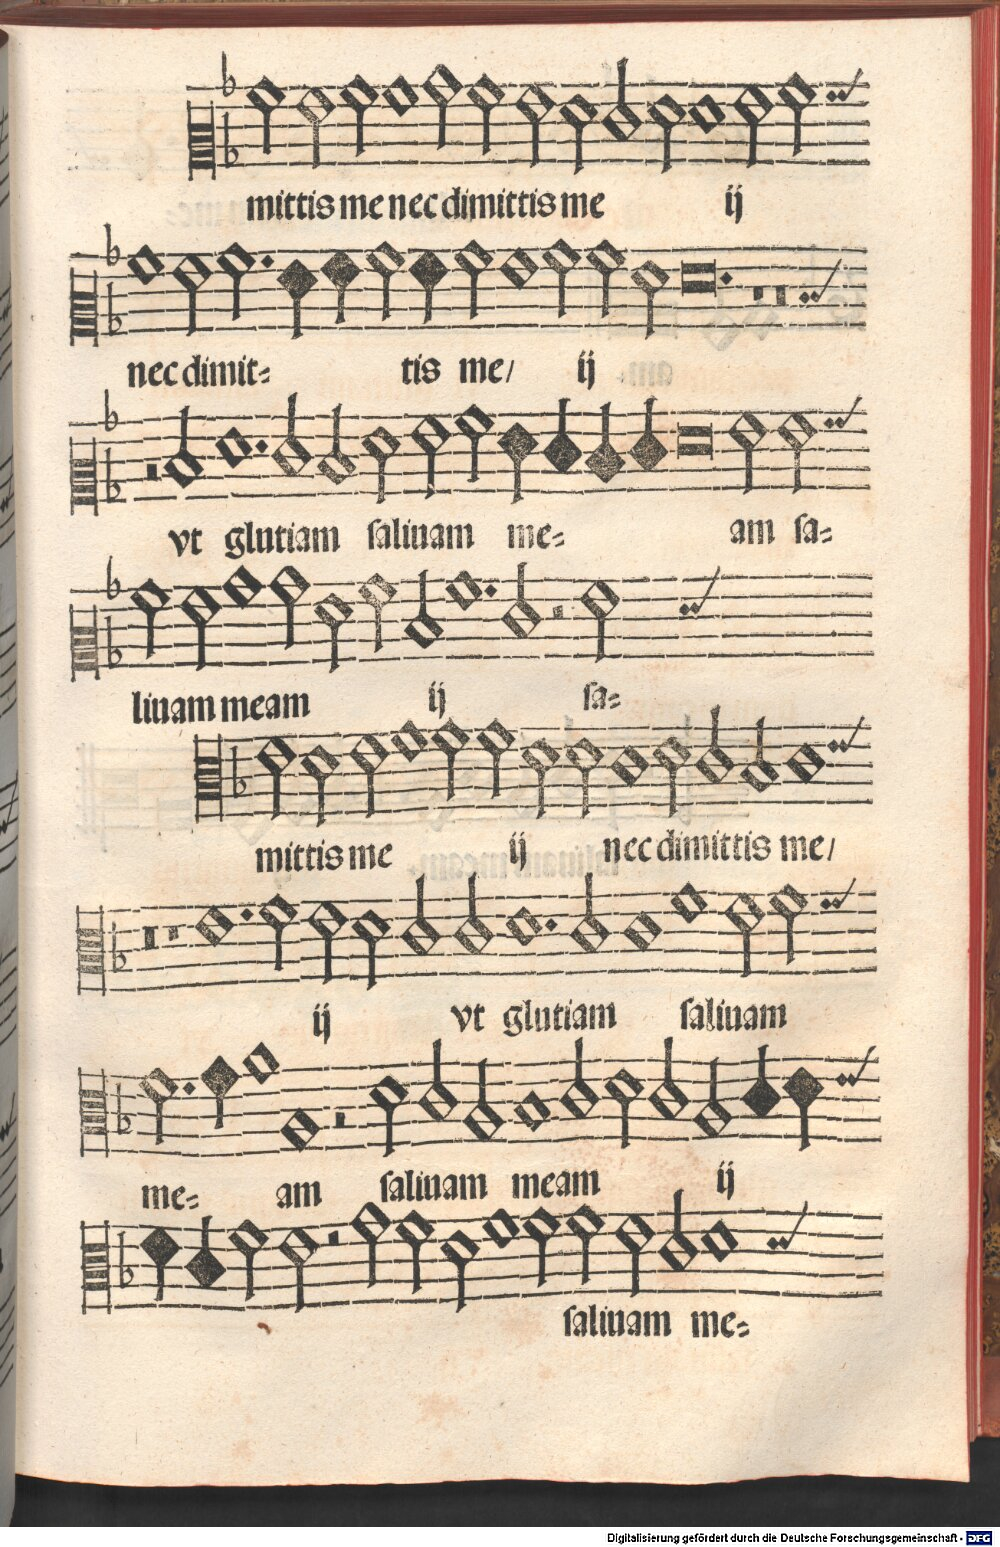 mittis me nec dimittis me ij
nec dimit= tis me/ ij
vt glutiam saliuam me= am sa=
liuam meam ij sa=
mittis me ij nec dimittis me/
ij vt glutiam saliuam
me= am saliuam meam ij
saliuam me=
Digitalisierung gefördert durch die Deutsche Forschungsgemeinschaft - DFG